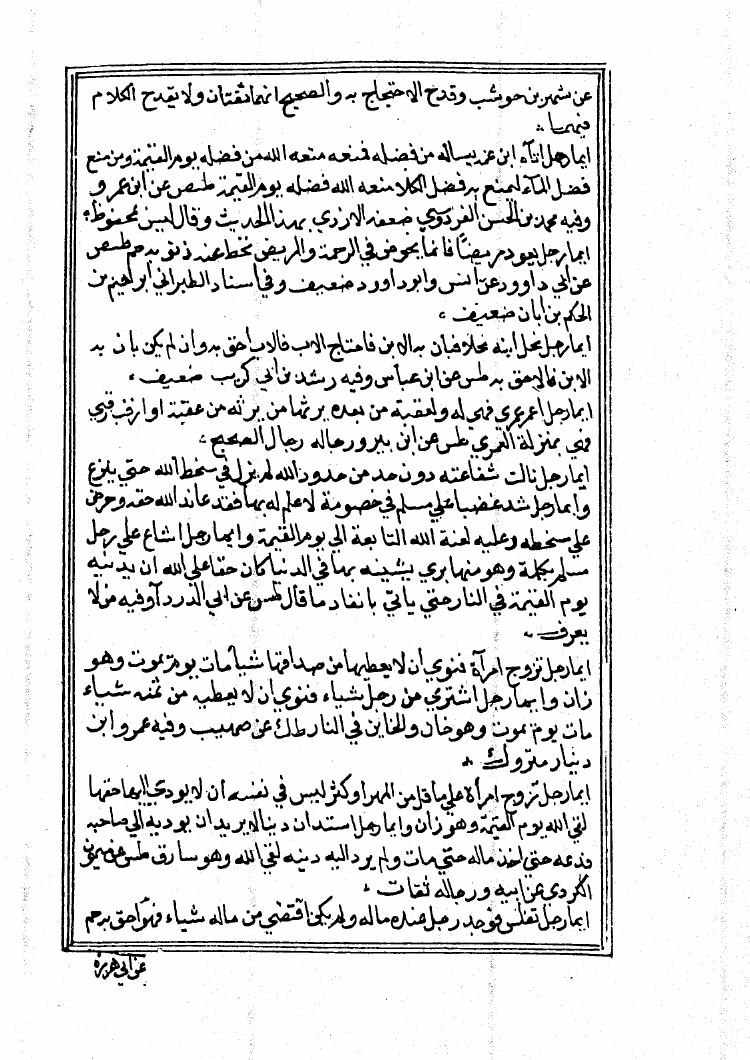 عن شهر بن حوشب وقدح الاحتجاج به والصحيح انهما ثقتان ولا يقدح الكلام
فيهما
ايما رجل اتاه ابن عمه يساله من فضله فمنعه منعه الله من فضله يوم القيمة ومن منع
فضل الماء ليمنع به فضل الكلا منعه الله فضله يوم القيمة طس ص عن ابن عمرو
وفيه محمد بن الحسن الفردوسي ضعفه الازدي بهذا الحديث وقال ليس بمحفوظ
ايما رجل يعود مريضا فانما يخوض في الرحمة والمريض تحط عنه ذنوبه حم طس ص
عن ابي داوود عن انس وابو داود ضعيف وفي اسناد الطبراني ابراهيم بن
الحكم بن ابان ضعيف
ايما رجل نحل ابنه نحلا فبان به الابن فاحتاج الاب فالاب احق به وان لم يكن بان به
الابن فالاب احق به طس عن ابن عباس وفيه رشد بن ابي كريب ضعيف
ايما رجل اعمر عمري فهي له ولعقبه من بعده يرثها من يرثه من عقبه او ارقب رقبي
فهي بمنزلة العمري طس عن ابن زبير ورجاله رجال الصحيح
ايما رجل حالت شفاعته دون حد من حدود الله لم يزل في سخط الله حتي ينزع
وايما رجل شد غضبا علي مسلم في خصومة لا علم له بها فقد عاند الله حقه وحرص
علي سخطه وعليه لعنة الله التابعة الي يوم القيمة وايما رجل اشاع علي رجل
مسلم بكلمة وهو منها بري يشينه بها في الدنيا كان حقا علي الله ان يدنيه
يوم القيمة في النار حتي ياتي بانفاد ما قال طس عن ابي الدرداء وفيه من لا
يعرف
ايما رجل تزوج امرأة فنوي ان لا يعطيها من صداقها شيأ مات يوم يموت وهو
زان وايما رجل اشتري من رجل شياء فنوي ان لا يعطيه من ثمنه شياء
مات يوم يموت وهو خان والخاين في النار طك عن صهيب وفيه عمرو ابن
دينار متروك
ايما رجل تزوج امرأة علي ما قل من المهر او كثر ليس في نفسه ان لا يودي اليها حقها
لقي الله يوم القيمة وهو زان وايما رجل استدان دينا لا يريد ان يوديه الي صاحبه
فدعه حتي اخذ ماله حتي مات ولم يرد اليه دينه لقي الله وهو سارق طس عن ميمون
الكردي عن ابيه ورجاله ثقات
ايما رجل تفلس فوجد رجل عنده ماله ولم يكن اقتضي من ماله شياء فهو احق به حم
عن ابي هريرة